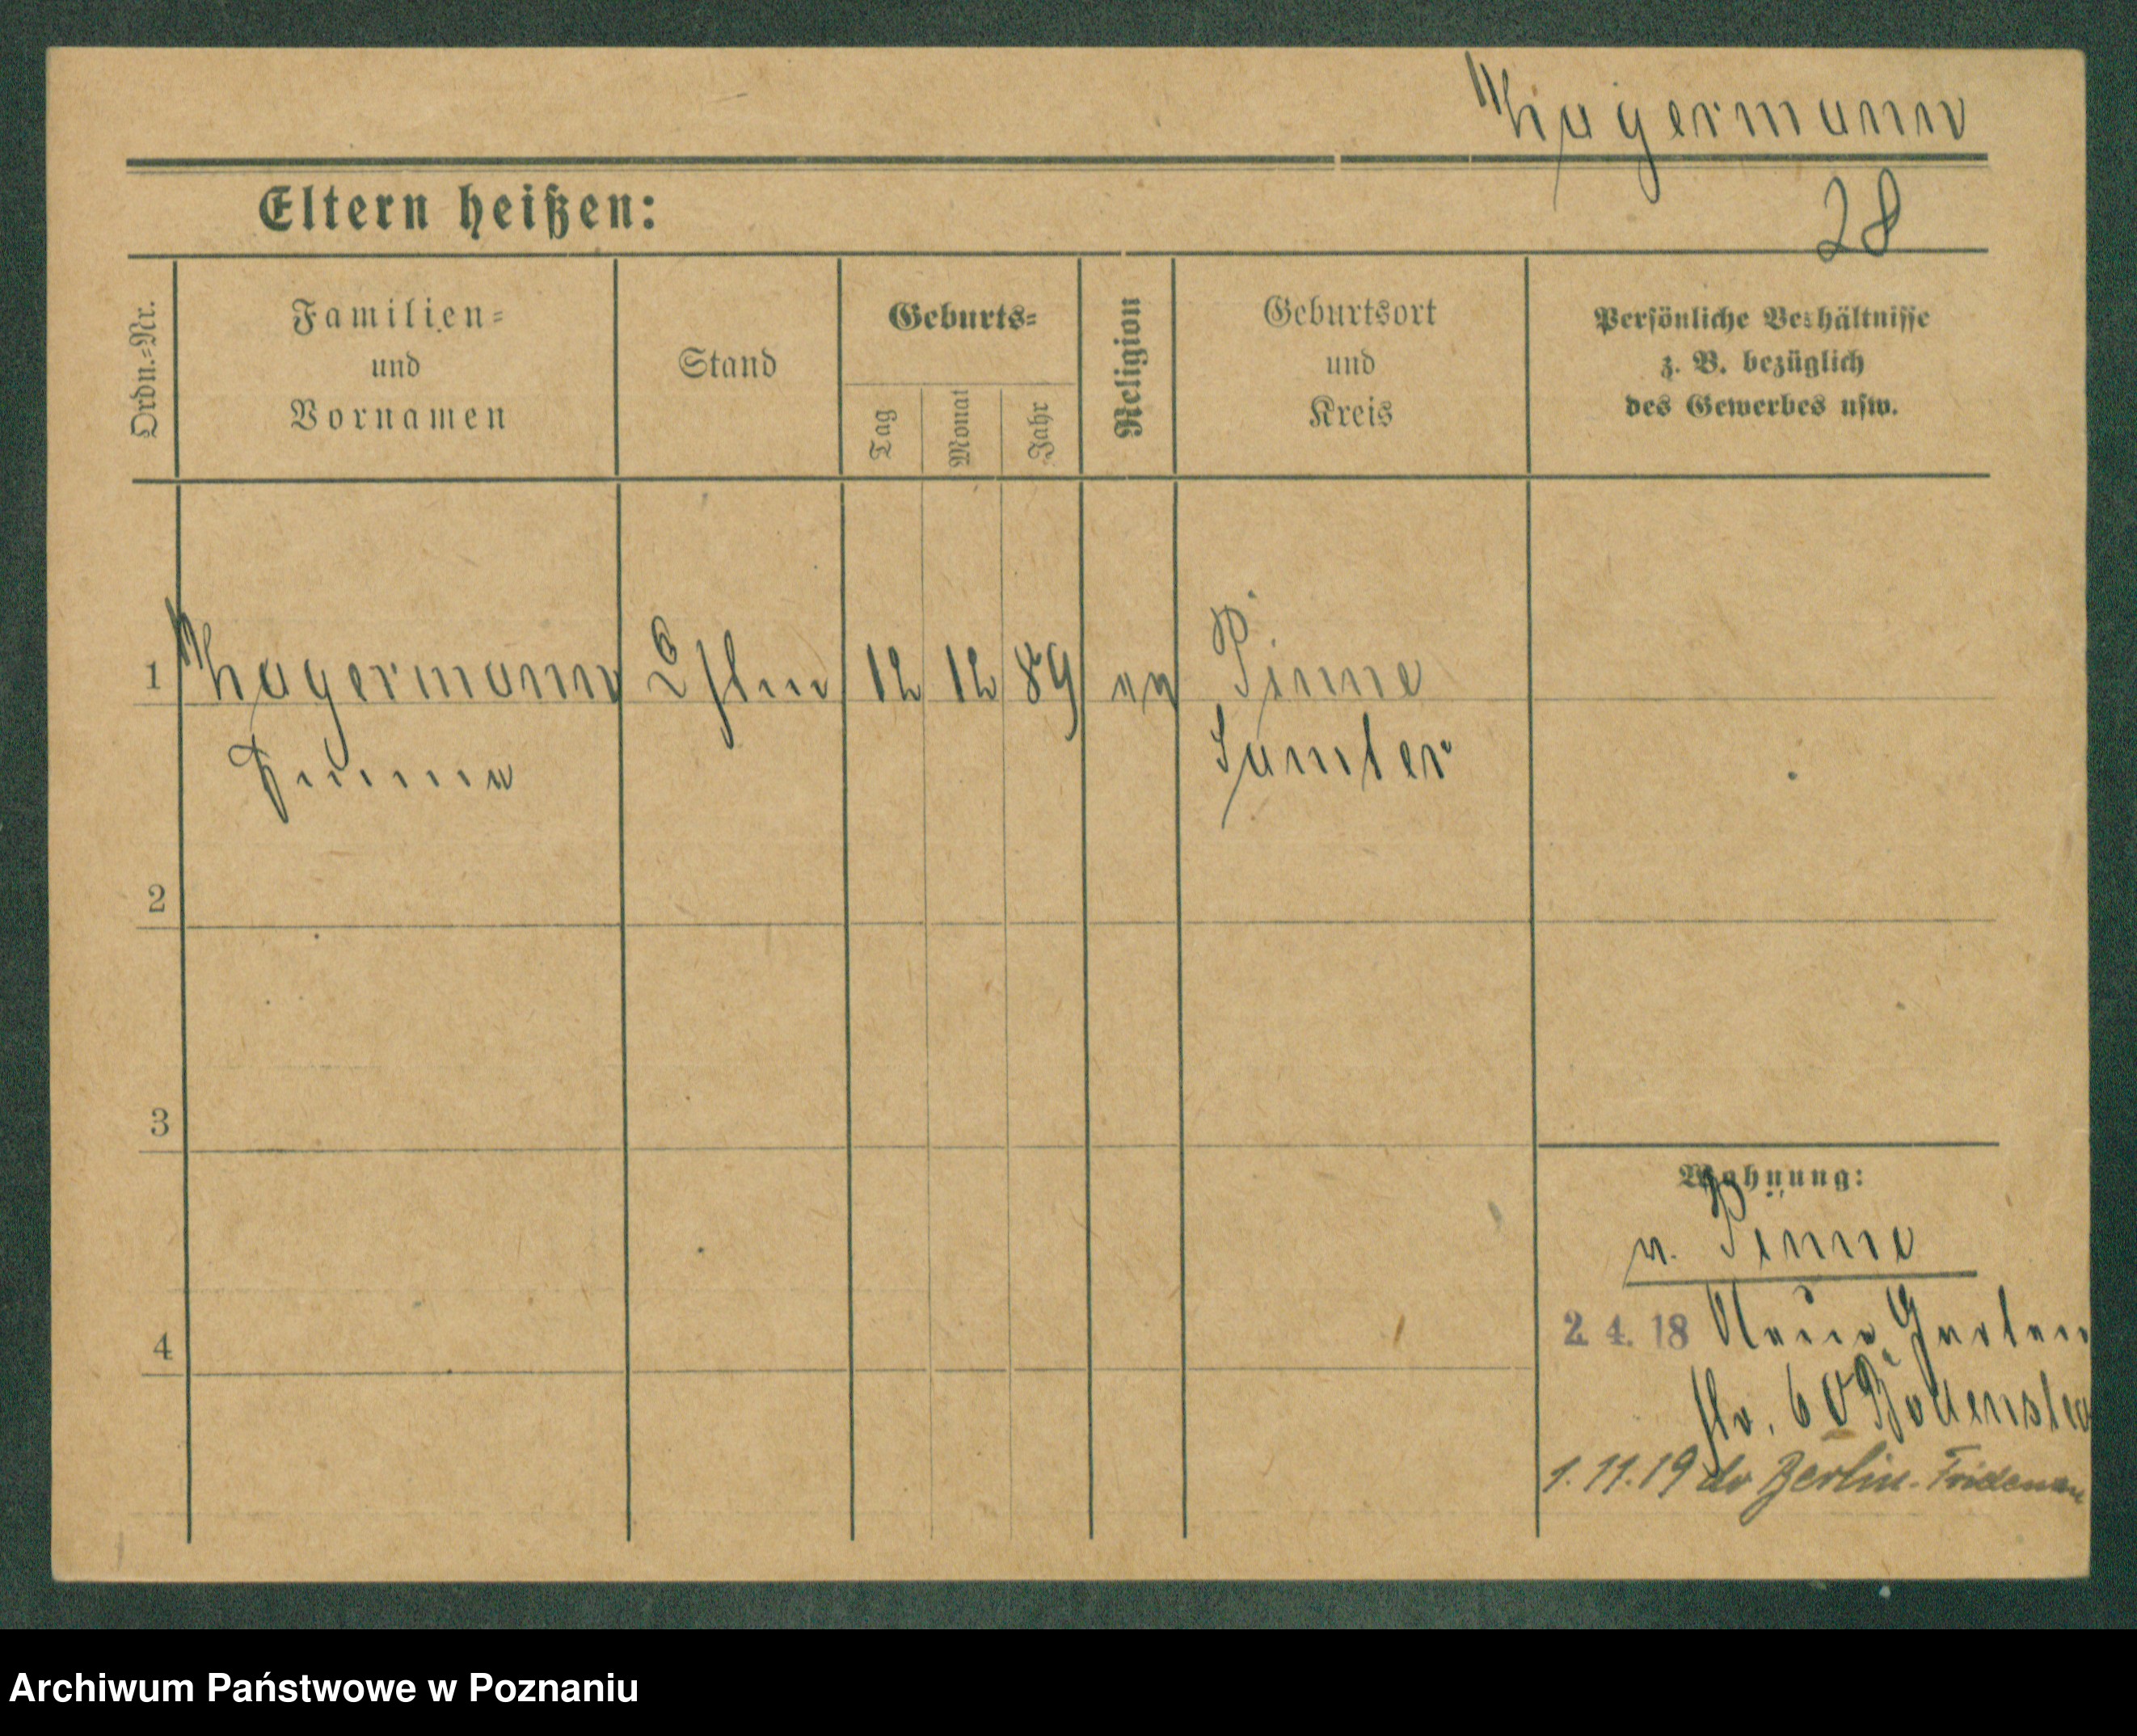 Hagermann
28
Eltern heißen:
Ordn.=Nr.
Familien=
und
Vornamen
Stand
Geburts=
Tag
Monat
Jahr
Religion
Geburtsort
und
Kreis
Persönliche Verhältnisse
z. B. bezüglich
des Gewerbes usw.
1 Hagermann 12 12 89 ev Pinne
Samter
2
3
4
Wohnung:
v. Pinne
2. 4. 18 Neue Garten
str. 60
1.11.19 do Berlin-Fridenau
Archiwum Państwowe w Poznaniu